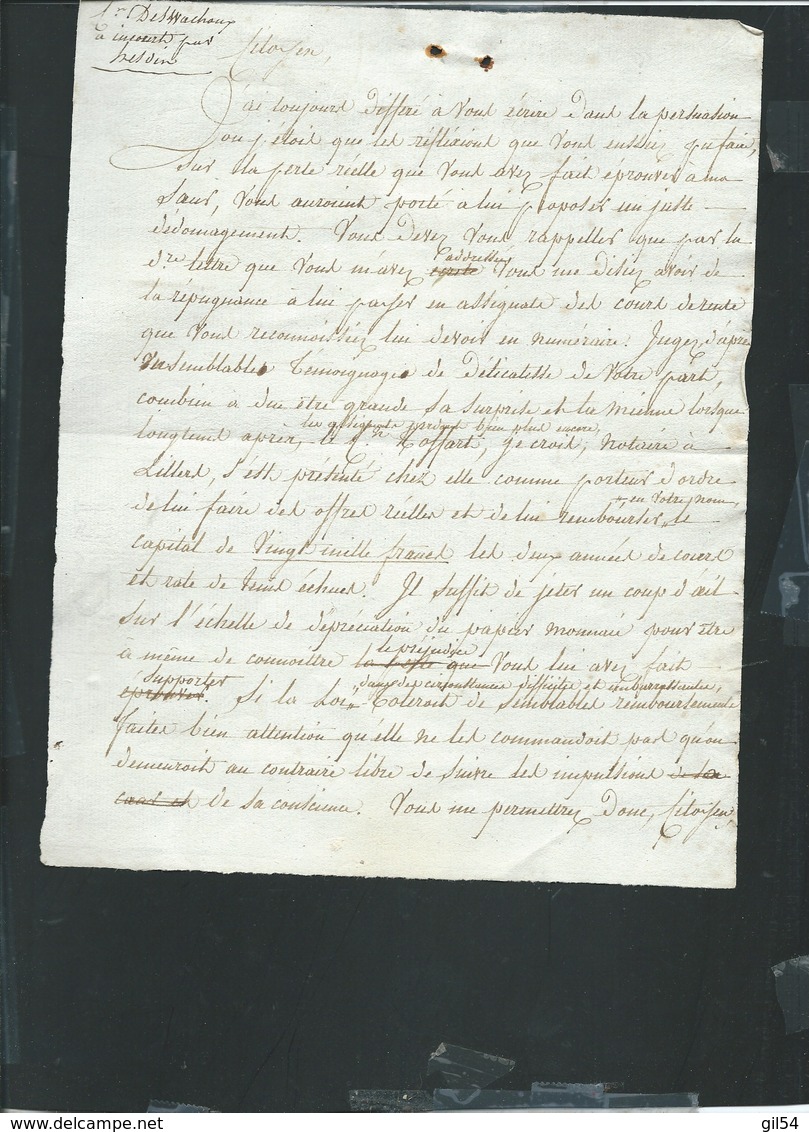 Deswachoux
à incourt par
hesdin
Citoyen,
J'ai toujours différé à vous écrire dans la persuasion
où j'etois que les réflexions que vous eussiez pu faire,
sur la perte réelle que vous avez fait éprouver à ma
sœur, vous auroient porté à lui proposer un juste
dédomagement. Vous devez vous rappeller que par la
dre lettre que vous m'avez addressée vous me disiez avoir de
la répugnance à lui payer en assignats des cours de rente
que vous reconnoissiez lui devoir en numéraire. Jugez, d'après
un semblable témoignage de délicatesse de votre part,
combien a due être grande sa surprise et la mienne lorsque
les assignats perdant bien plus encore,
longtems après, le Cn Toffart, je crois, notaire à
Lillers, s'est présenté chez elle comme porteur d'ordre
de lui faire des offres réelles et de lui rembourser, en votre nom, le
capital de vingt mille francs les deux années de cours
et rate de tems échues. Il suffit de jeter un coup d'œil
sur l'échelle de dépréciation du papier monnaie pour être
à même de connoître la perte que le préjudice vous lui avez fait
éprouver. supporter Si la Loi, dans des circonstances difficiles et embarrassantes,
toléroit de semblables remboursements
faites bien attention qu'elle ne les commandoit pas qu'on
demeuroit au contraire libre de suivre les impulsions de son
cœur et de sa conscience. Vous me permettrez donc, Citoyen,
gil54